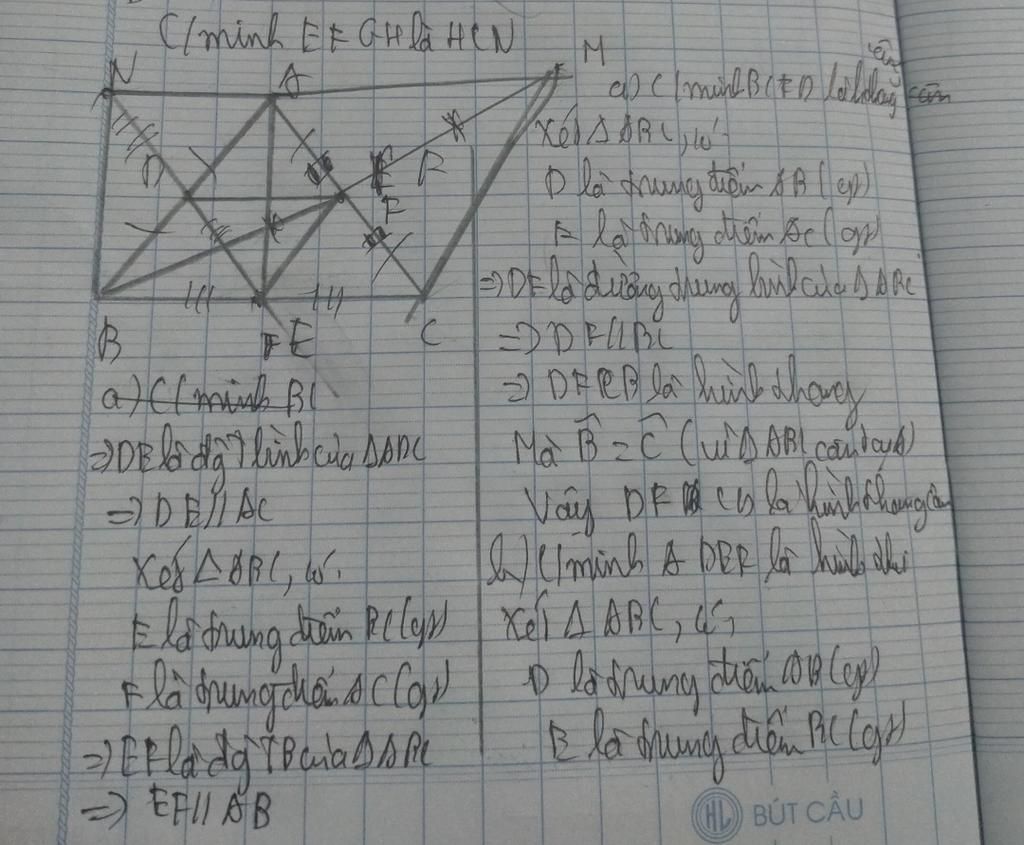 C/minh EFGH là HCN
N
A
M
D
F
B
E
C
a) C/minh BCFD là thang cân
Xét △ ABC, có
D là trung điểm AB (gt)
F là trung điểm AC (gt)
=> DF là đường trung bình của △ ABC
=> DF // BC
=> DFCB là hình thang
Mà B̂ = Ĉ (vì △ ABC cân tại A)
Vậy DF CB là hình thang cân
b) C/minh A DEF là hình thoi
Xét △ ABC, có,
D là trung điểm AB (gt)
E là trung điểm BC (gt)
a) C/minh BC
=> DE là đg T bình của △ABC
=> DE // AC
Xét △ ABC, có.
E là trung điểm BC (gt)
F là trung điểm AC (gt)
=> EF là đg TB của △ ABC
=> EF // AB
HL BÚT CẦU